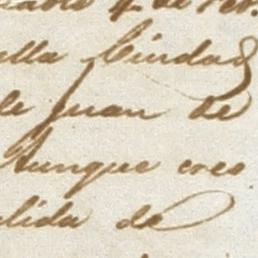 4 de Feb.
ella Ciudad
de Juan de
Aunque creo
alida de